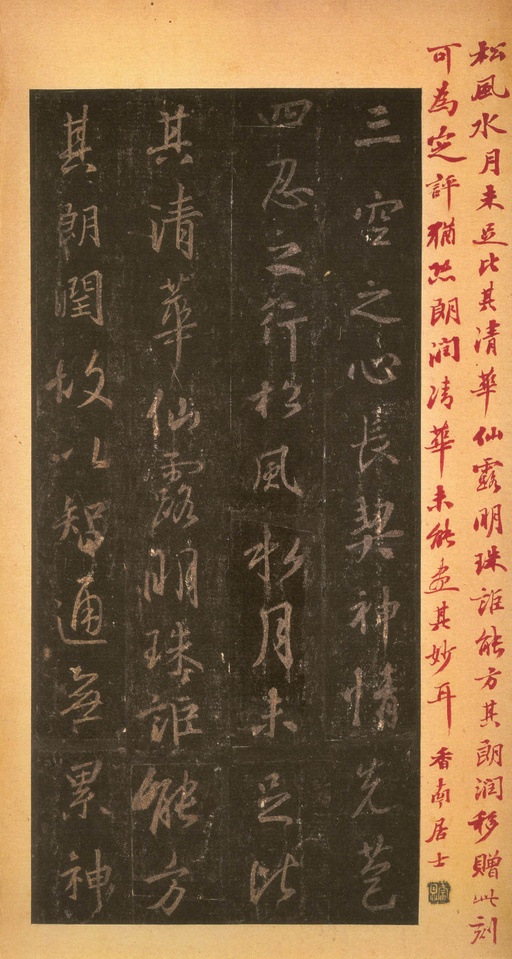 松風水月未足比其清華仙露明珠詎能方其朗润移贈此刻
可為定評猶恐朗润清華未能盡其妙耳 香南居士
三空之心長契神情先苞
四忍之行松風水月未足比
其清華仙露明珠詎能方
其朗潤故以智通無累神